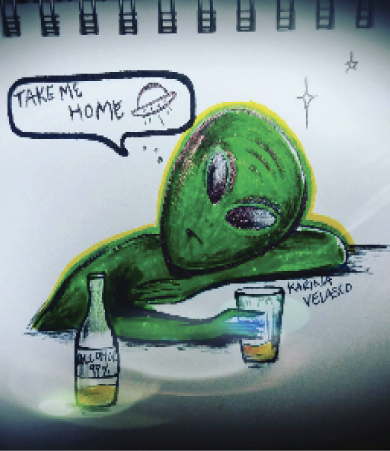 TAKE ME
HOME
KARINA
VELASCO
ALCOHOL
99%